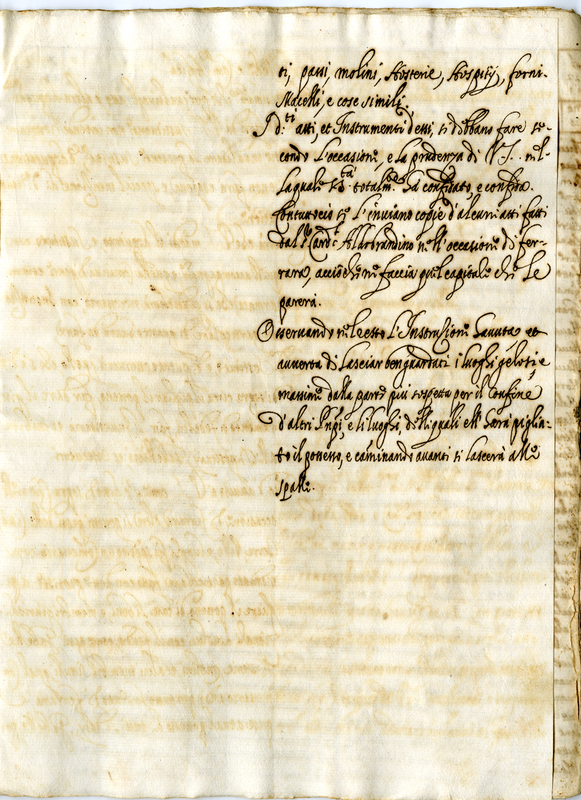 ti, passi, molini, Hosterie, Hospitij, forni.
Macelli, e cose simili.
I d.ti atti, et Instrumenti detti, si debbano fare se-
condo l'occasioni, e la prudenza di V.S. nel-
la quale S. S.tà totalm.te hà confidato, e confida.
Contuttociò se l'inviano copie d'alcuni atti fatti
dal Card. Aldobrandino nell'occasione di Fer-
rara, acciò che ne faccia quel capitale che le
parerà.
Osservando nel resto l'Instruzione havuta et
avverta di lasciar ben guardati i luoghi gelosi e
massime dalla parte più sospetta per il confine
d'altri Pnpi, e li luoghi, delli quali ella haverà piglia-
to il possesso, e caminando avanti si lascerà alle
spalle.